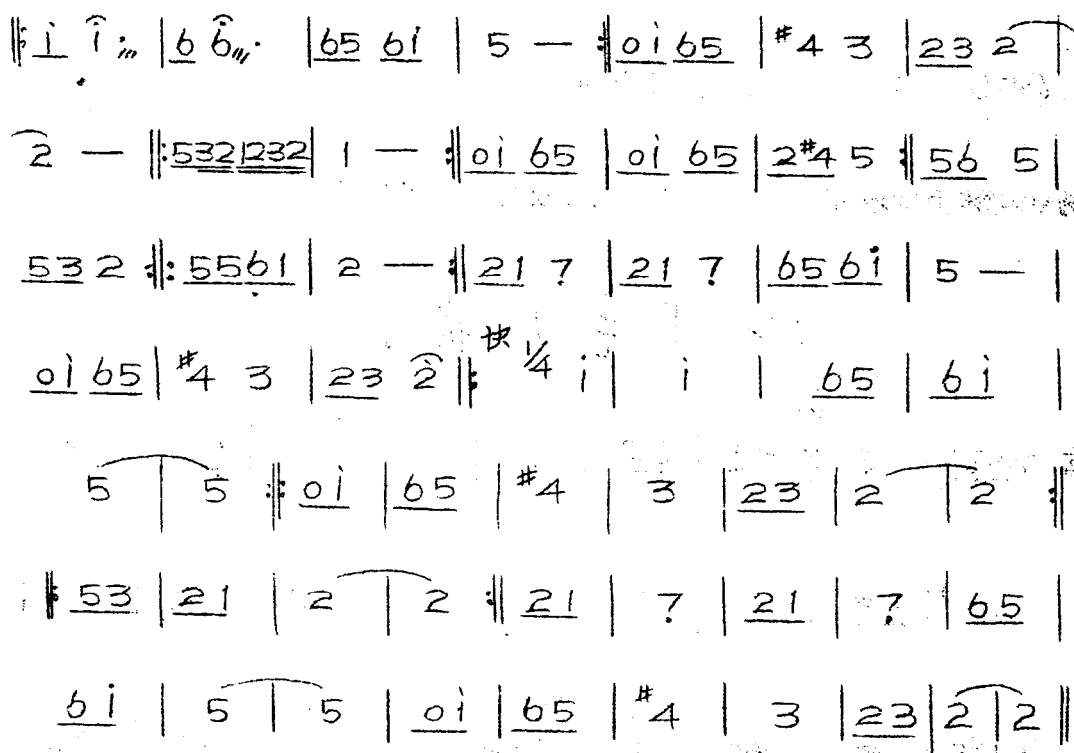 ‖: i i ‖ | 6 6 · | 65 6i | 5 — :‖ 0i 65 | #4 3 | 23 2 |
2 — ‖: 532 1232 | 1 — :‖ 0i 65 | 0i 65 | 2#4 5 :‖ 56 5 |
53 2 :‖: 5561 | 2 — :‖ 21 7 | 21 7 | 65 6i | 5 — |
0i 65 | #4 3 | 23 2 ‖: 快 1/4 i | i | 65 | 6i |
5 | 5 :‖: 0i | 65 | #4 | 3 | 23 | 2 | 2 :‖
‖: 53 | 21 | 2 | 2 :‖ 21 | 7 | 21 | 7 | 65 |
6i | 5 | 5 | 0i | 65 | #4 | 3 | 23 | 2 | 2 ‖